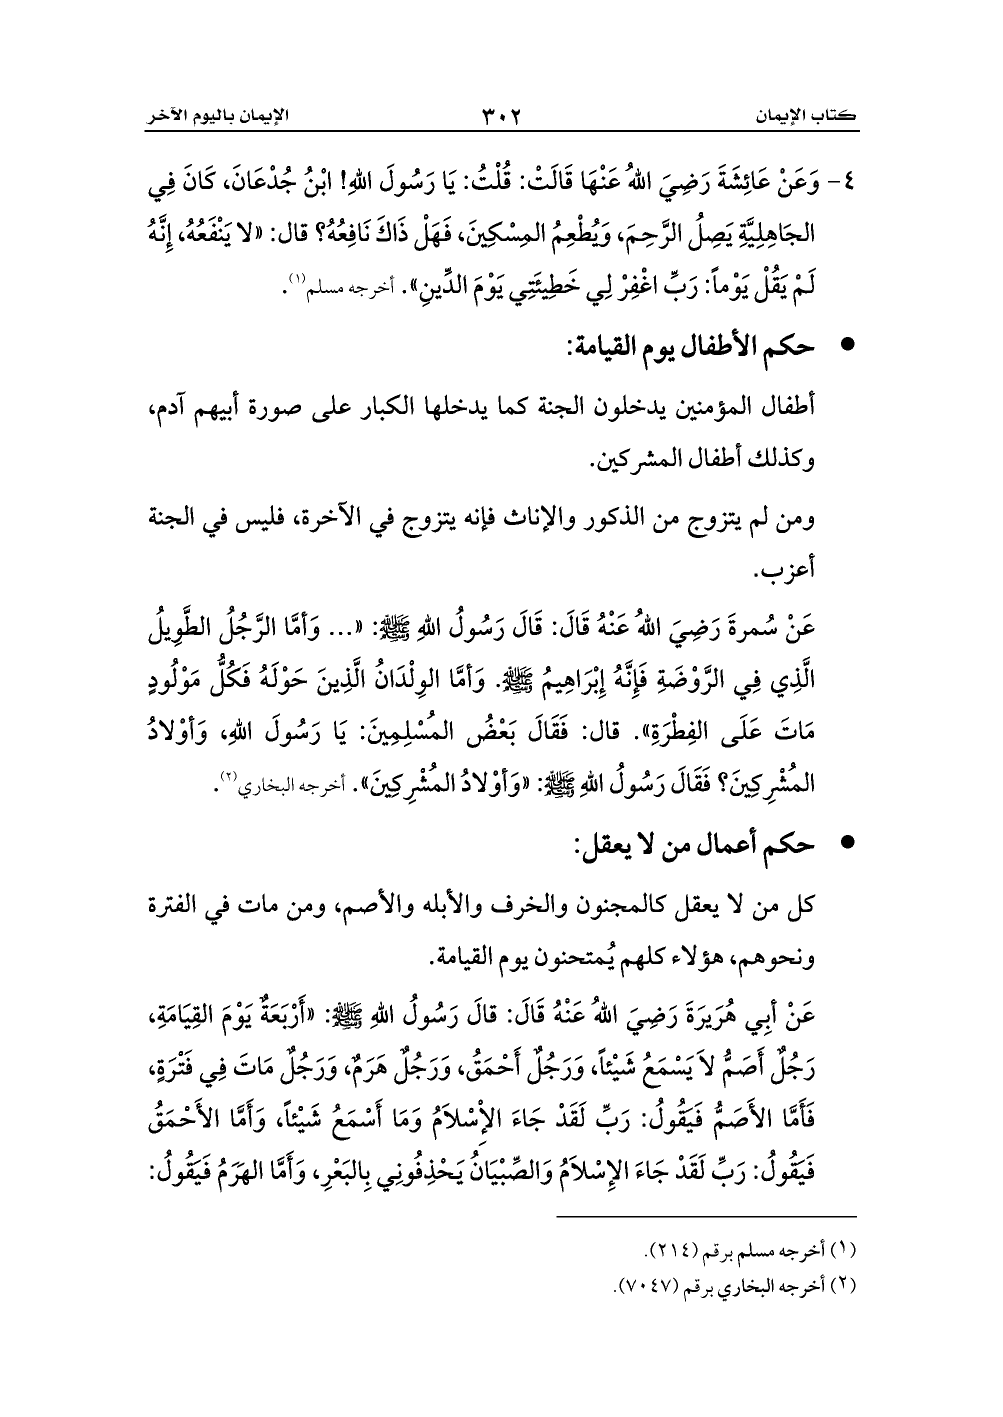 كتاب الإيمان ٣٠٢ الإيمان باليوم الآخر
٤- وَعَنْ عَائِشَةَ رَضِيَ اللهُ عَنْهَا قَالَتْ: قُلْتُ: يَا رَسُولَ اللهِ! ابْنُ جُدْعَانَ، كَانَ فِي
الجَاهِلِيَّةِ يَصِلُ الرَّحِمَ، وَيُطْعِمُ المِسْكِينَ، فَهَلْ ذَاكَ نَافِعُهُ؟ قال: «لا يَنْفَعُهُ، إِنَّهُ
لَمْ يَقُلْ يَوْماً: رَبِّ اغْفِرْ لِي خَطِيئَتِي يَوْمَ الدِّينِ». أخرجه مسلم(١).
● حكم الأطفال يوم القيامة:
أطفال المؤمنين يدخلون الجنة كما يدخلها الكبار على صورة أبيهم آدم،
وكذلك أطفال المشركين.
ومن لم يتزوج من الذكور والإناث فإنه يتزوج في الآخرة، فليس في الجنة
أعزب.
عَنْ سُمرةَ رَضِيَ اللهُ عَنْهُ قَالَ: قَالَ رَسُولُ اللهِ ﷺ: «... وَأمَّا الرَّجُلُ الطَّوِيلُ
الَّذِي فِي الرَّوْضَةِ فَإِنَّهُ إِبْرَاهِيمُ ﷺ. وَأمَّا الوِلْدَانُ الَّذِينَ حَوْلَهُ فَكُلُّ مَوْلُودٍ
مَاتَ عَلَى الفِطْرَةِ». قال: فَقَالَ بَعْضُ المُسْلِمِينَ: يَا رَسُولَ اللهِ، وَأوْلادُ
المُشْرِكِينَ؟ فَقَالَ رَسُولُ اللهِ ﷺ: «وَأوْلادُ المُشْرِكِينَ». أخرجه البخاري(٢).
● حكم أعمال من لا يعقل:
كل من لا يعقل كالمجنون والخرف والأبله والأصم، ومن مات في الفترة
ونحوهم، هؤلاء كلهم يُمتحنون يوم القيامة.
عَنْ أبِي هُرَيرَةَ رَضِيَ اللهُ عَنْهُ قَالَ: قالَ رَسُولُ اللهِ ﷺ: «أَرْبَعَةٌ يَوْمَ القِيَامَةِ،
رَجُلٌ أَصَمُّ لاَ يَسْمَعُ شَيْئاً، وَرَجُلٌ أَحْمَقُ، وَرَجُلٌ هَرَمٌ، وَرَجُلٌ مَاتَ فِي فَتْرَةٍ،
فَأَمَّا الأَصَمُّ فَيَقُولُ: رَبِّ لَقَدْ جَاءَ الإْسْلاَمُ وَمَا أَسْمَعُ شَيْئاً، وَأَمَّا الأَحْمَقُ
فَيَقُولُ: رَبِّ لَقَدْ جَاءَ الإِسْلاَمُ وَالصِّبْيَانُ يَحْذِفُونِي بِالبَعْرِ، وَأَمَّا الهَرَمُ فَيَقُولُ:
(١) أخرجه مسلم برقم (٢١٤).
(٢) أخرجه البخاري برقم (٧٠٤٧).